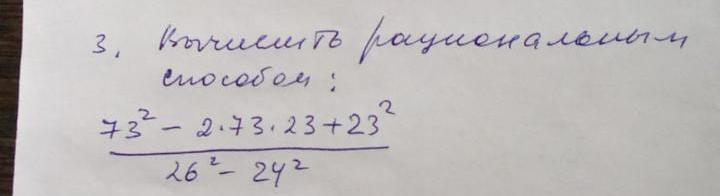 3. Вычислить рациональным
способом:
73² - 2·73·23+23²
26² - 24²